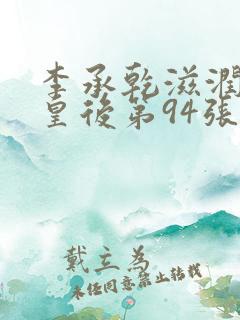 李承乾滋潤
皇後第94張
戴立為
未经同意禁止转载